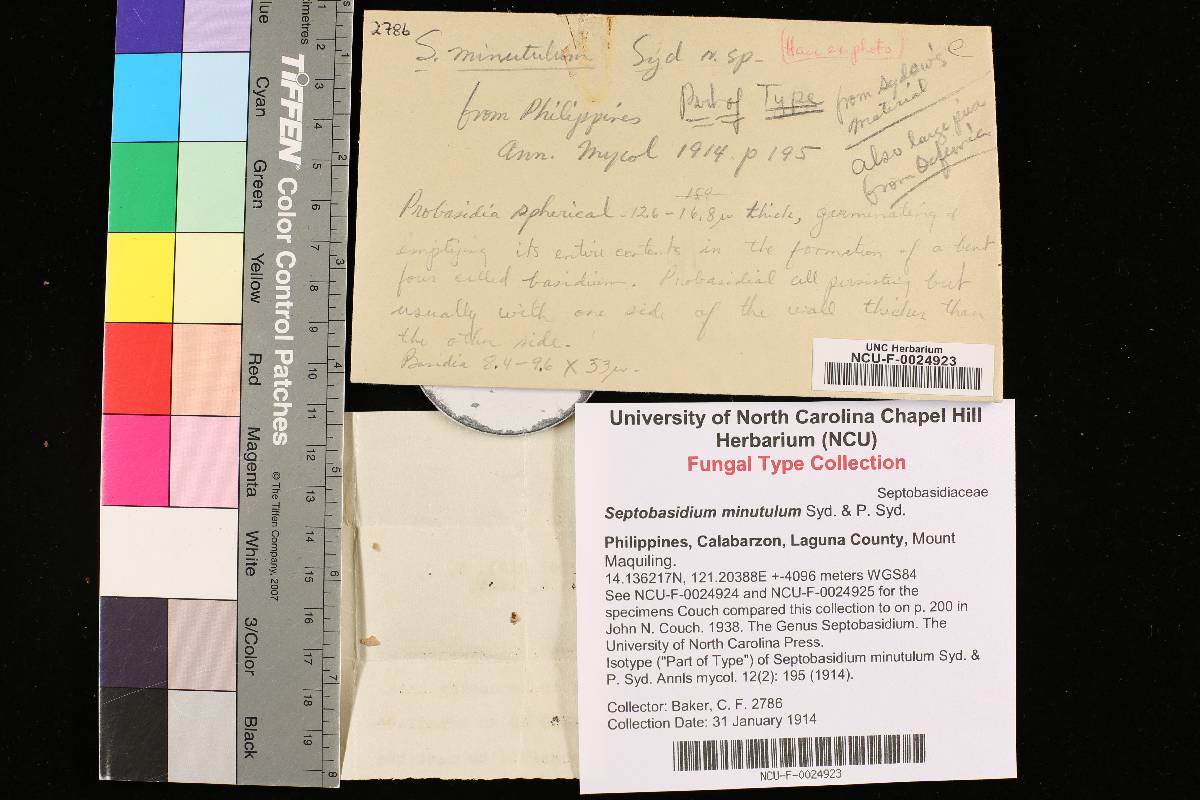 2786
S. minutulum Syd n. sp. (Have on photo) C
from Philippines Part of Type from Sydow's
material
Ann. Mycol 1914. p 195
also large piece
from
Probasidia spherical 12.6-16.8µ thick, germinating &
emptying its entire contents in the formation of a bent
four celled basidium. Probasidial cell persisting but
usually with one side of the wall thicker than
the other side.
Basidia 8.4-9.6 X 33µ.
UNC Herbarium
NCU-F-0024923
University of North Carolina Chapel Hill
Herbarium (NCU)
Fungal Type Collection
Septobasidiaceae
Septobasidium minutulum Syd. & P. Syd.
Philippines, Calabarzon, Laguna County, Mount
Maquiling.
14.136217N, 121.20388E +-4096 meters WGS84
See NCU-F-0024924 and NCU-F-0024925 for the
specimens Couch compared this collection to on p. 200 in
John N. Couch. 1938. The Genus Septobasidium. The
University of North Carolina Press.
Isotype ("Part of Type") of Septobasidium minutulum Syd. &
P. Syd. Annls mycol. 12(2): 195 (1914).
Collector: Baker, C. F. 2786
Collection Date: 31 January 1914
NCU-F-0024923
TIFFEN Color Control Patches
© The Tiffen Company, 2007
Cyan
Green
Yellow
Red
Magenta
White
3/Color
Black
1 2 3 4 5 6 7 8 9 10 11 12 13 14 15 16 17 18 19
1 2 3 4 5 6 7 8